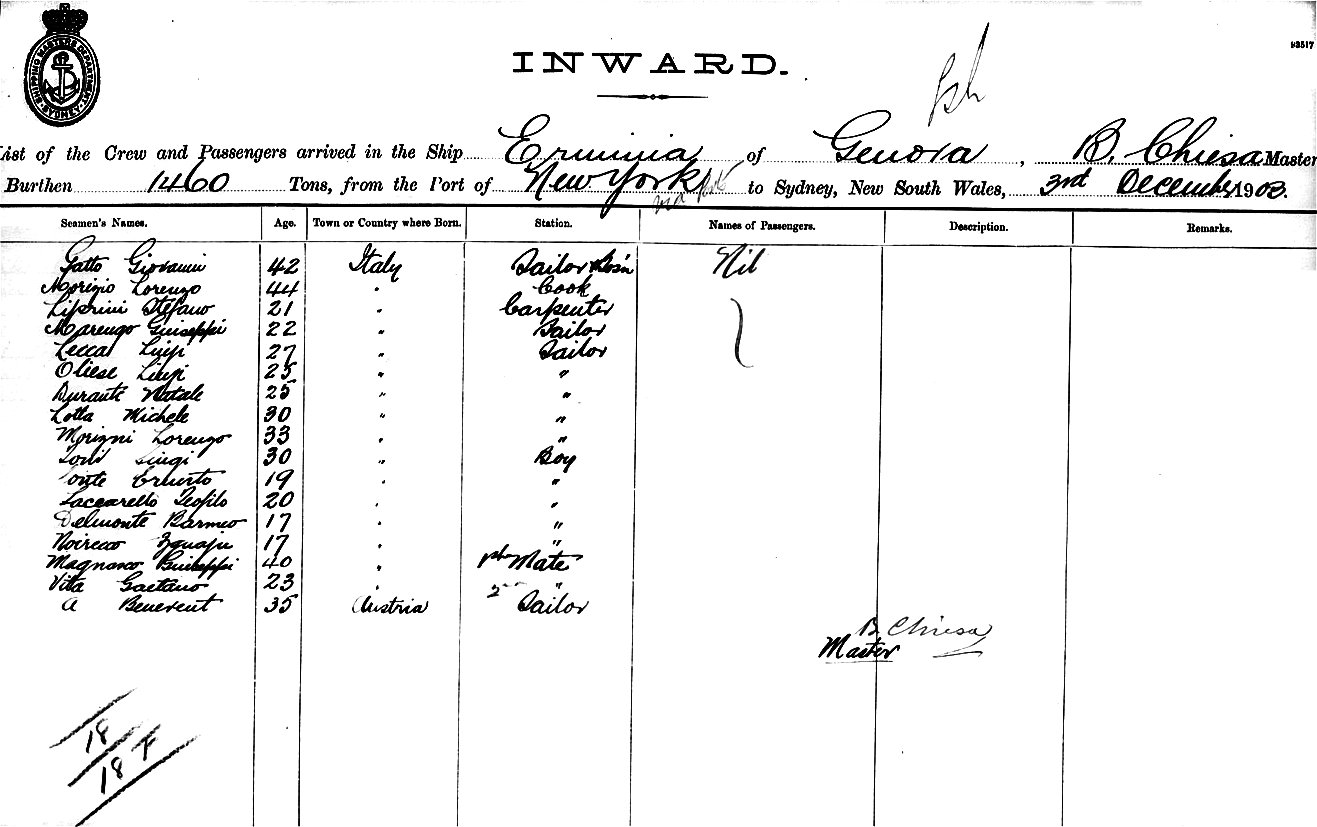 SHIPPING MASTERS DEPARTMENT SYDNEY
93517
INWARD.
List of the Crew and Passengers arrived in the Ship Erminia of Genova, B. Chiesa Master
Burthen 1460 Tons, from the Port of New York via to Sydney, New South Wales, 3rd December 1903.
Seamen's Names. Age. Town or Country where Born. Station. Names of Passengers. Description. Remarks.
Gatto Giovanni 42 Italy Sailor Bos'n Nil
Morizio Lorenzo 44 " Cook
Liprini Stefano 21 " Carpenter
Marengo Guiseppi 22 " Sailor
Lecca Luigi 27 " Sailor
Oliese Luigi 25 " "
Durante Natale 25 " "
Lolla Michele 30 " "
Morizni Lorenzo 33 " "
Luigi 30 " Boy
19 " "
Saccarello Teofilo 20 " "
Delmonte Barmeo 17 " "
17 " "
Magnasco Guiseppi 40 " 1st Mate
Vita Gaetano 23 " 2nd "
A Benevent 35 Austria Sailor
B. Chiesa
Master
18
18 F